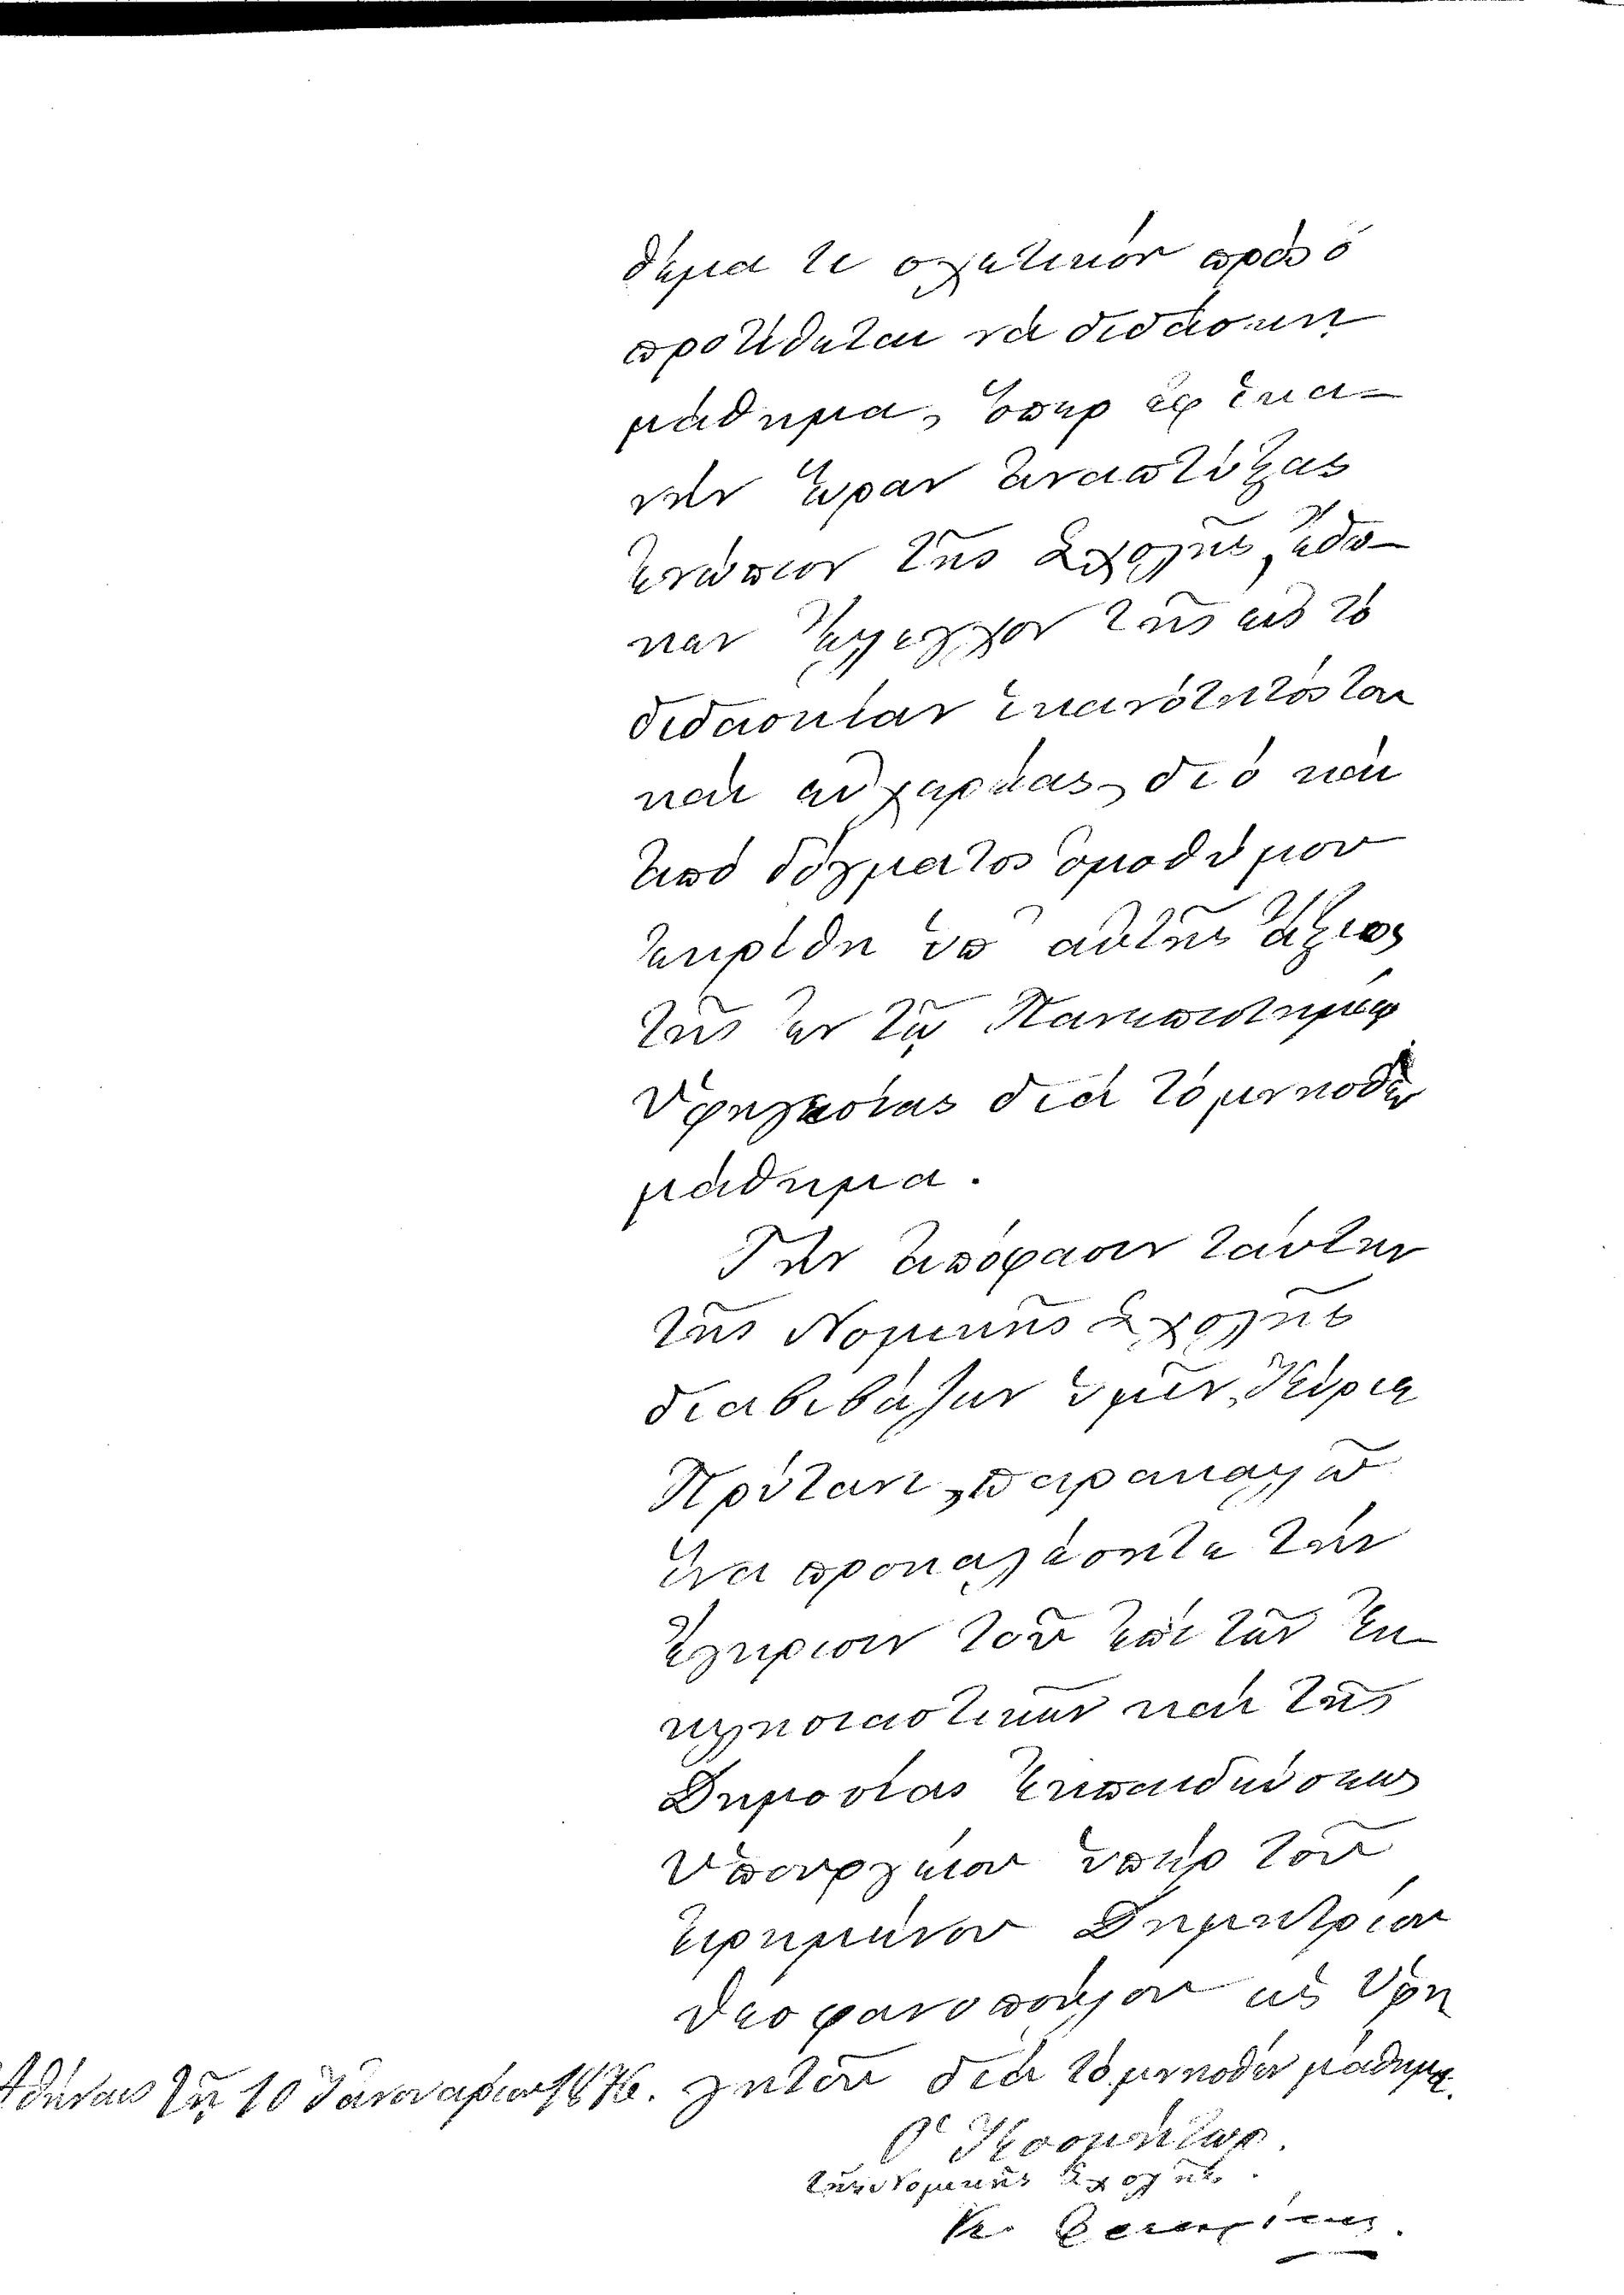 θέμα τι σχετικὸν πρὸς ὃ
προτίθεται νὰ διδάσκῃ
μάθημα, ὅπερ ἐφ' ἱκα-
νὴν ὥραν ἀναπτύξας
ἐνώπιον τῆς Σχολῆς, ἔδω-
κεν ἔλεγχον τῆς εἰς τὸ
διδάσκειν ἱκανότητός του
καὶ εὐχερείας, διὸ καὶ
ἀπὸ δόγματος ὁμοθύμου
ἐκρίθη ὑπ' αὐτῆς ἄξιος
τῆς ἐν τῷ Πανεπιστημίῳ
Ὑφηγεσίας διὰ τὸ μνησθὲν
μάθημα.
Τὴν ἀπόφασιν ταύτην
τῆς Νομικῆς Σχολῆς
διαβιβάζων ὑμῖν, Κύριε
Πρύτανι, παρακαλῶ
ἵνα προκαλέσητε τὴν
ἔγκρισιν τοῦ ἐπὶ τῶν Ἐκ-
κλησιαστικῶν καὶ τῆς
Δημοσίας Ἐκπαιδεύσεως
Ὑπουργείου ὑπὲρ τοῦ
εἰρημένου Δημητρίου
Θεοφανοπούλου ὡς Ὑφη
γητοῦ διὰ τὸ μνησθὲν μάθημα.
Ἀθήναις τῇ 10 Ἰανουαρίου 1876.
Ὁ Κοσμήτωρ
τῆς Νομικῆς Σχολῆς.